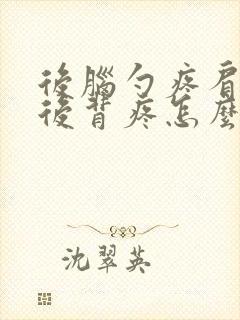 後腦勺疼肩
後背疼怎麼
沈翠英